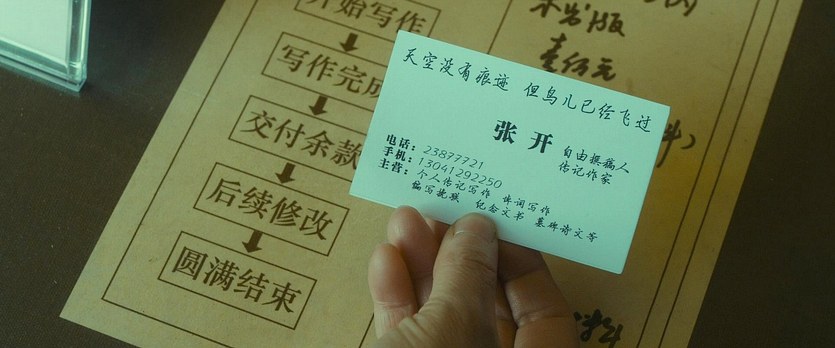 开始写作
写作完成
交付余款
后续修改
圆满结束
未发版
壹仟元
天空没有痕迹 但鸟儿已经飞过
张开
自由撰稿人
传记作家
电话：23877721
手机：13041292250
主营：个人传记写作 诗词写作
编写挽联 纪念文书 墓碑诗文等